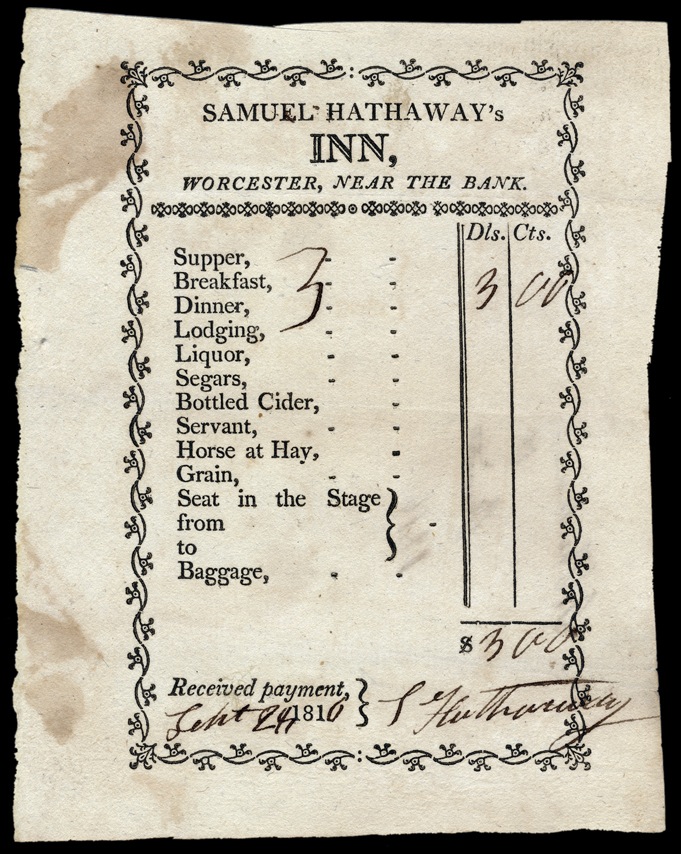 SAMUEL HATHAWAY's
INN,
WORCESTER, NEAR THE BANK.
Dls. Cts.
Supper, - -
Breakfast, 3 - - 3 00
Dinner, - -
Lodging, - -
Liquor, - -
Segars, - -
Bottled Cider, -
Servant, - -
Horse at Hay, -
Grain, - -
Seat in the Stage
from } -
to
Baggage, - -
$ 3 00
Received payment, }
Sept 24 1810 S Hathaway